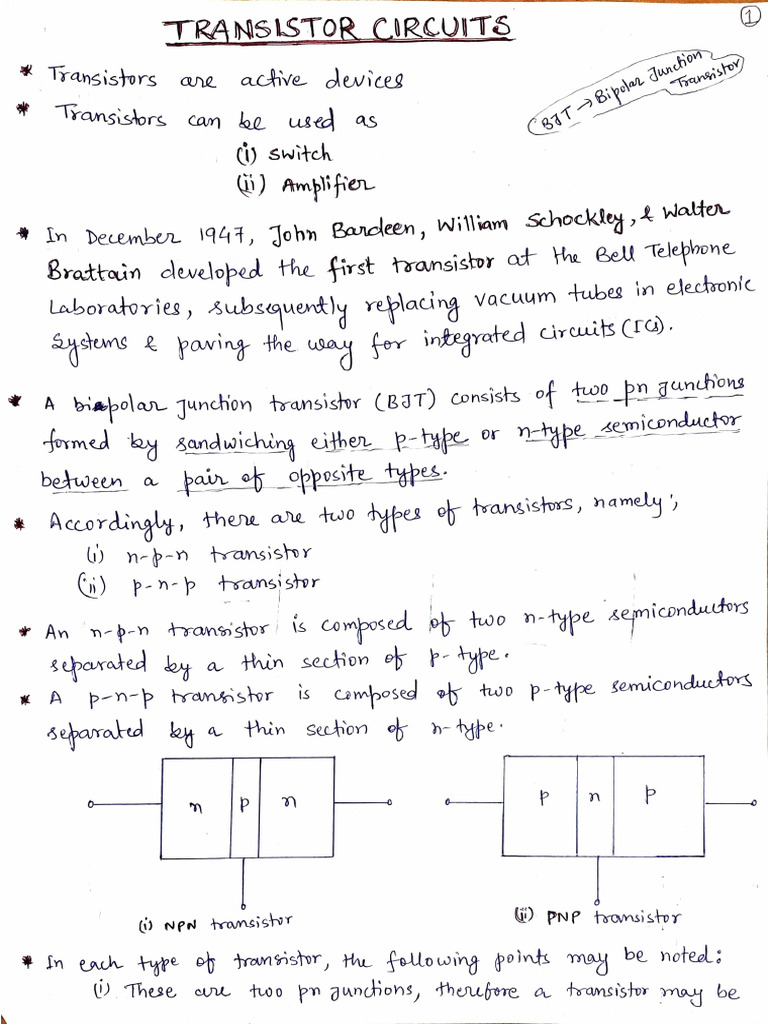 TRANSISTOR CIRCUITS
1
* Transistors are active devices
BJT → Bipolar Junction
Transistor
* Transistors can be used as
(i) Switch
(ii) Amplifier
* In December 1947, John Bardeen, William Schockley, & Walter
Brattain developed the first transistor at the Bell Telephone
Laboratories, subsequently replacing vacuum tubes in electronic
systems & paving the way for integrated circuits (ICs).
* A bipolar junction transistor (BJT) consists of two pn junctions
formed by sandwiching either p-type or n-type semiconductor
between a pair of opposite types.
* Accordingly, there are two types of transistors, namely;
(i) n-p-n transistor
(ii) p-n-p transistor
* An n-p-n transistor is composed of two n-type semiconductors
separated by a thin section of p-type.
* A p-n-p transistor is composed of two p-type semiconductors
separated by a thin section of n-type.
n p n
p n p
(i) NPN transistor
(ii) PNP transistor
* In each type of transistor, the following points may be noted:
(i) These are two pn junctions, therefore a transistor may be